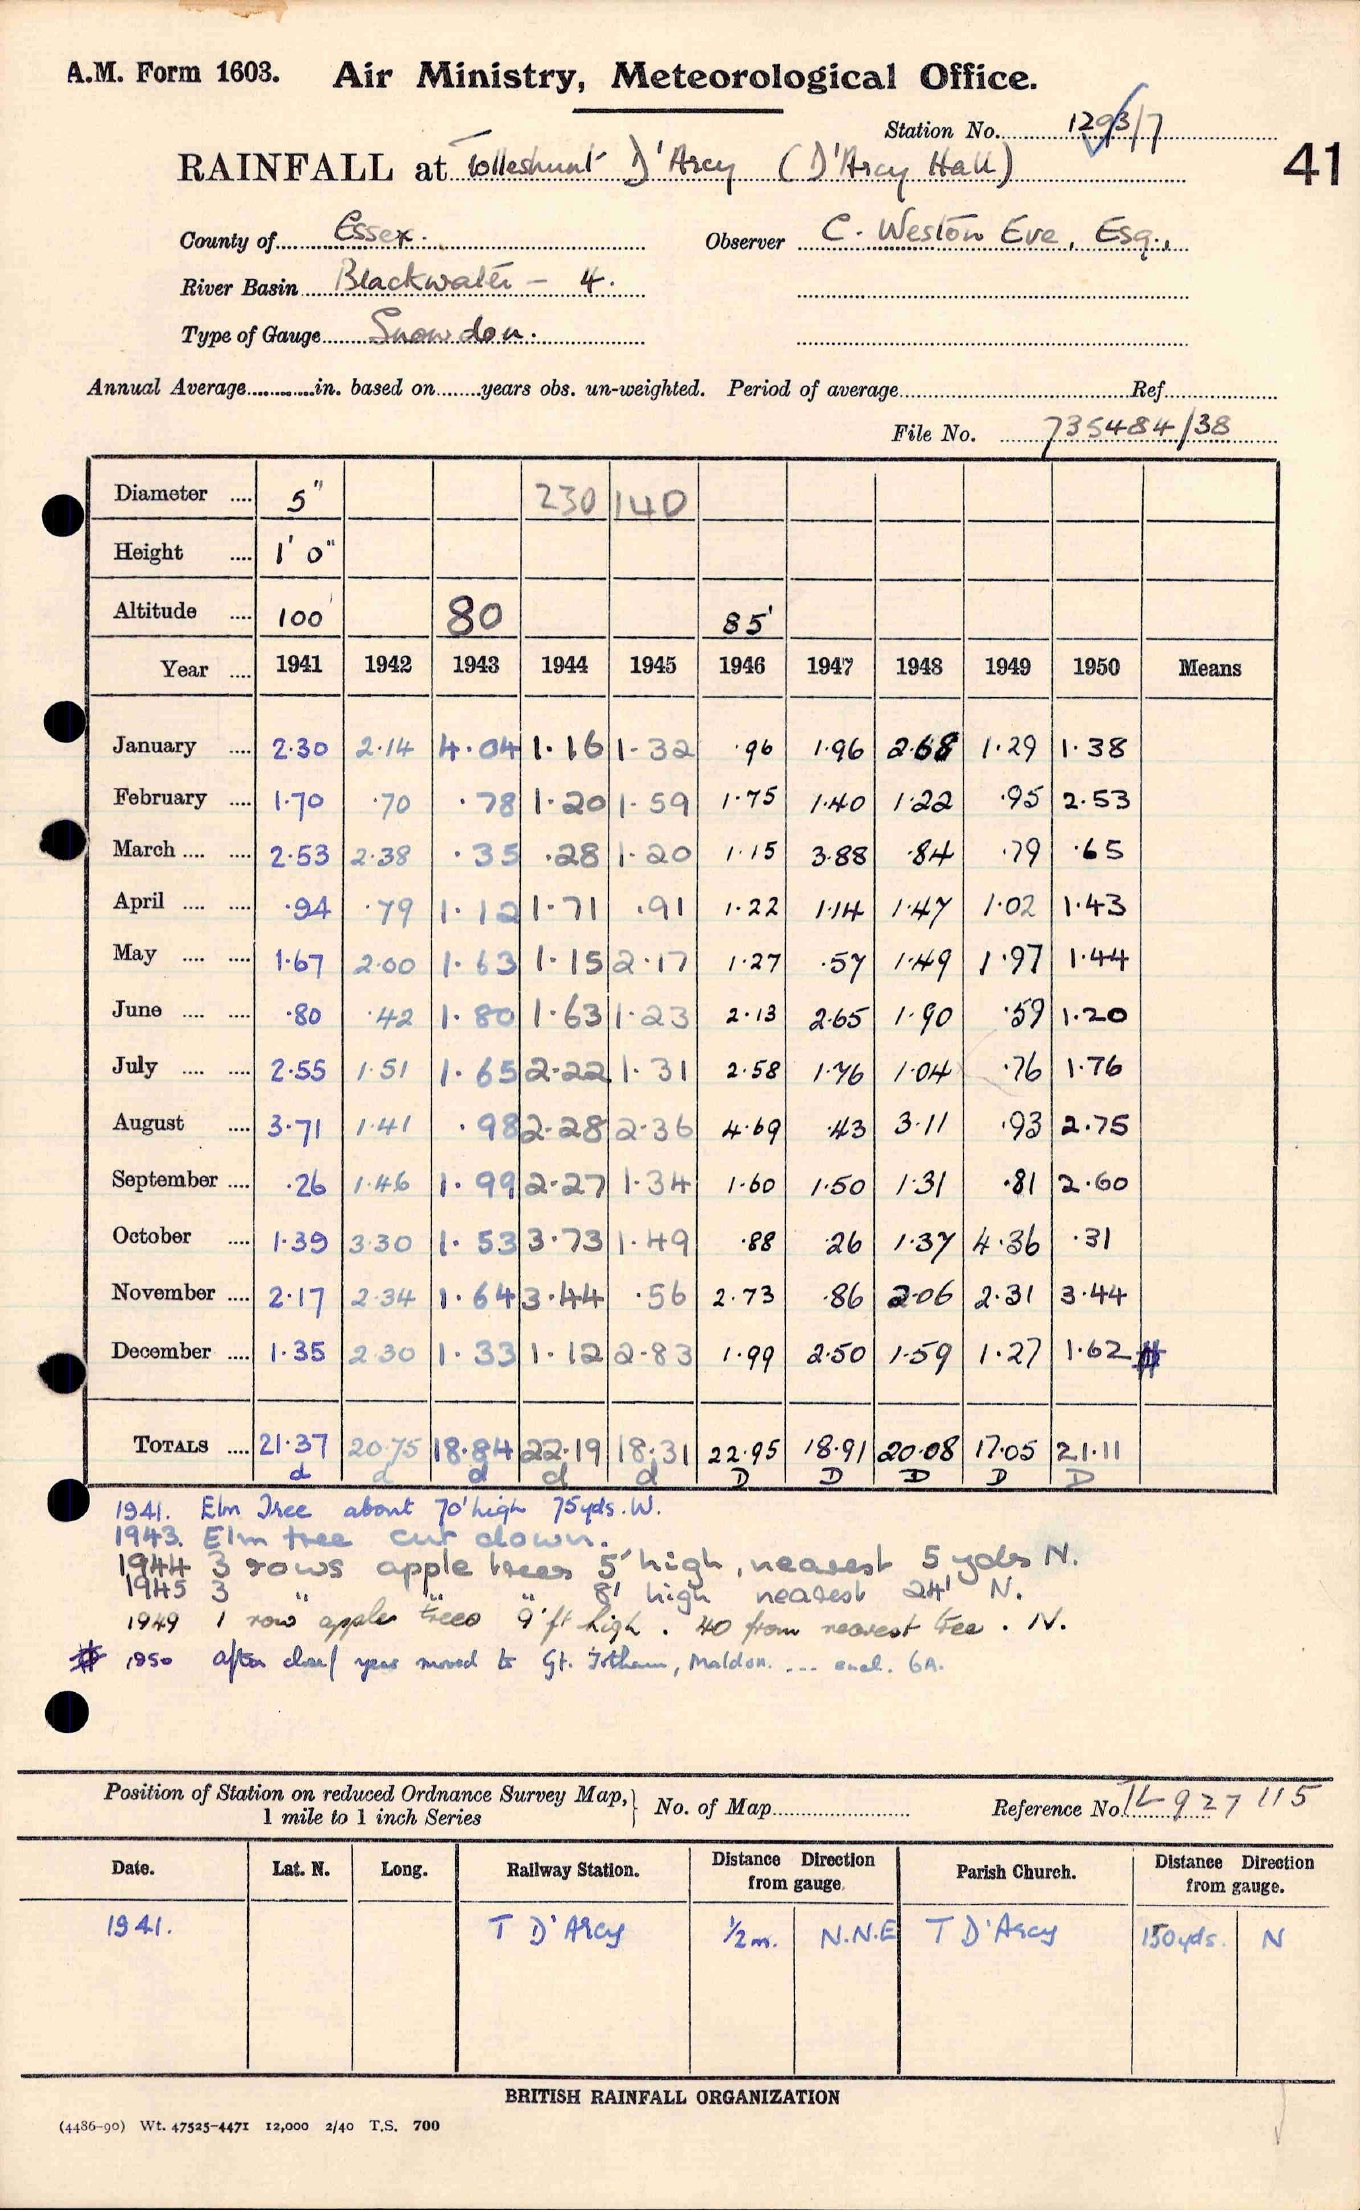 A.M. Form 1603. Air Ministry, Meteorological Office.
Station No. 1293/7
RAINFALL at Tolleshunt D'Arcy (D'Arcy Hall) 41
County of Essex. Observer C. Weston Eve, Esq.,
River Basin Blackwater - 4.
Type of Gauge Snowdon.
Annual Average............in. based on........years obs. un-weighted. Period of average........ Ref........
File No. 735484/38
Diameter .... 5" 230 140
Height .... 1' 0"
Altitude .... 100' 80 85'
Year .... 1941 1942 1943 1944 1945 1946 1947 1948 1949 1950 Means
January .... 2.30 2.14 4.04 1.16 1.32 .96 1.96 2.68 1.29 1.38
February .... 1.70 .70 .78 1.20 1.59 1.75 1.40 1.22 .95 2.53
March .... .... 2.53 2.38 .35 .28 1.20 1.15 3.88 .84 .79 .65
April .... .... .94 .79 1.12 1.71 .91 1.22 1.14 1.47 1.02 1.43
May .... .... 1.67 2.00 1.63 1.15 2.17 1.27 .57 1.49 1.97 1.44
June .... .... .80 .42 1.80 1.63 1.23 2.13 2.65 1.90 .59 1.20
July .... .... 2.55 1.51 1.65 2.22 1.31 2.58 1.76 1.04 .76 1.76
August .... 3.71 1.41 .98 2.28 2.36 4.69 .43 3.11 .93 2.75
September .... .26 1.46 1.99 2.27 1.34 1.60 1.50 1.31 .81 2.60
October .... 1.39 3.30 1.53 3.73 1.49 .88 .26 1.37 4.36 .31
November .... 2.17 2.34 1.64 3.44 .56 2.73 .86 2.06 2.31 3.44
December .... 1.35 2.30 1.33 1.12 2.83 1.99 2.50 1.59 1.27 1.62 #
TOTALS .... 21.37 20.75 18.84 22.19 18.31 22.95 18.91 20.08 17.05 21.11
d d d d d D D D D D
1941. Elm Tree about 70' high 75yds. W.
1943. Elm tree cut down.
1944 3 rows apple trees 5' high, nearest 5 yds N.
1945 3 " " " 8' high nearest 24' N.
1949 1 row apple trees 9' ft high. 40 from nearest tree. N.
# 1950 after close/ year moved to Gt. Totham, Maldon. ... encl. 6A.
Position of Station on reduced Ordnance Survey Map, } No. of Map........ Reference No TL 927 115
1 mile to 1 inch Series
Date. Lat. N. Long. Railway Station. Distance Direction from gauge. Parish Church. Distance Direction from gauge.
1941. T D'Arcy 1/2 m. N.N.E T D'Arcy 150yds. N
BRITISH RAINFALL ORGANIZATION
(4486-90) Wt. 47525-4471 12,000 2/40 T.S. 700